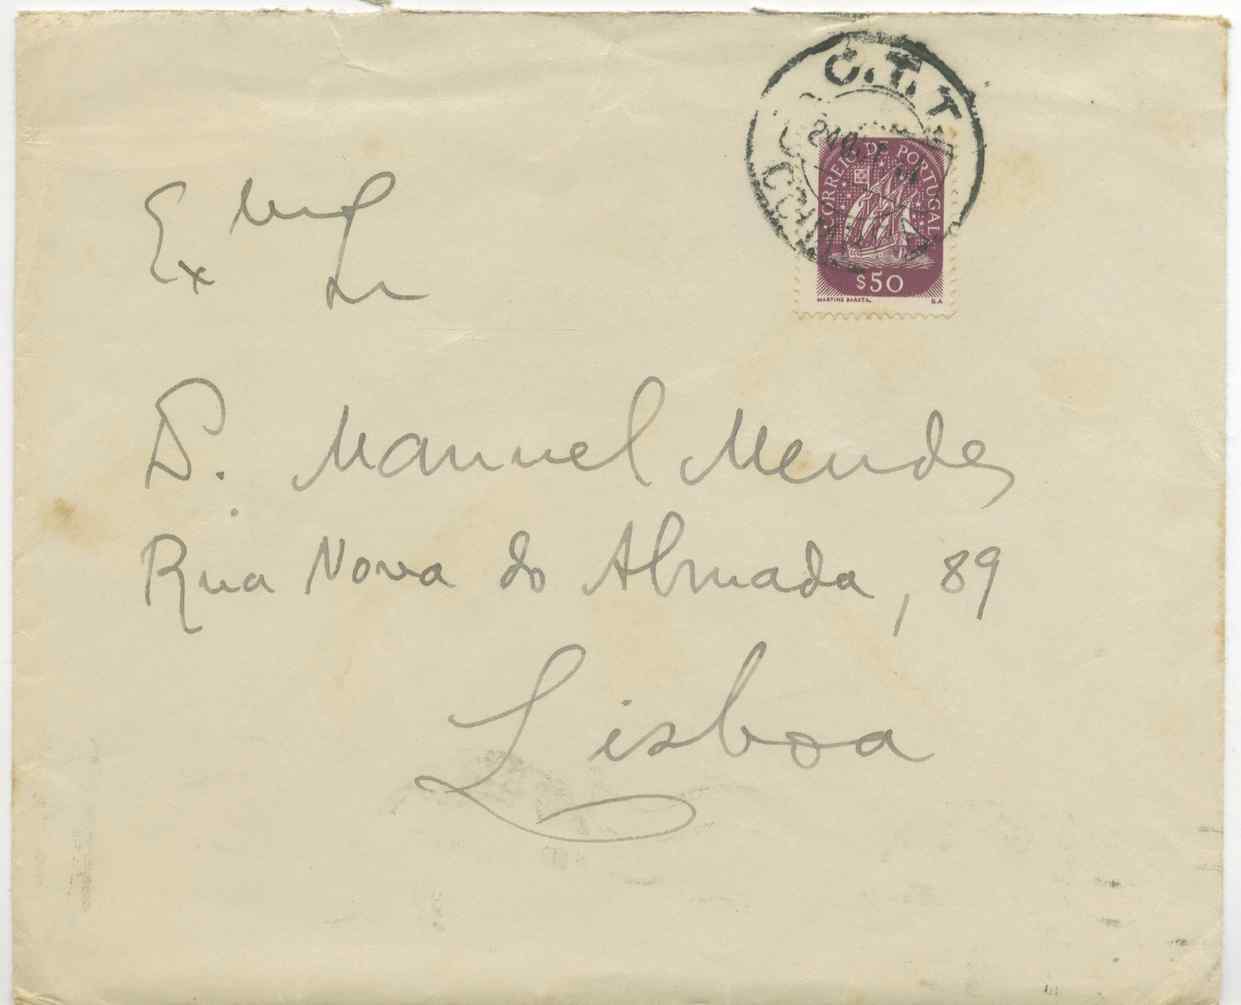 C.T.T
CORREIO DE PORTUGAL
$50
MARTINS BARATA.
Ex mo
Sr
D. Manuel Mendes
Rua Nova do Almada, 89
Lisboa